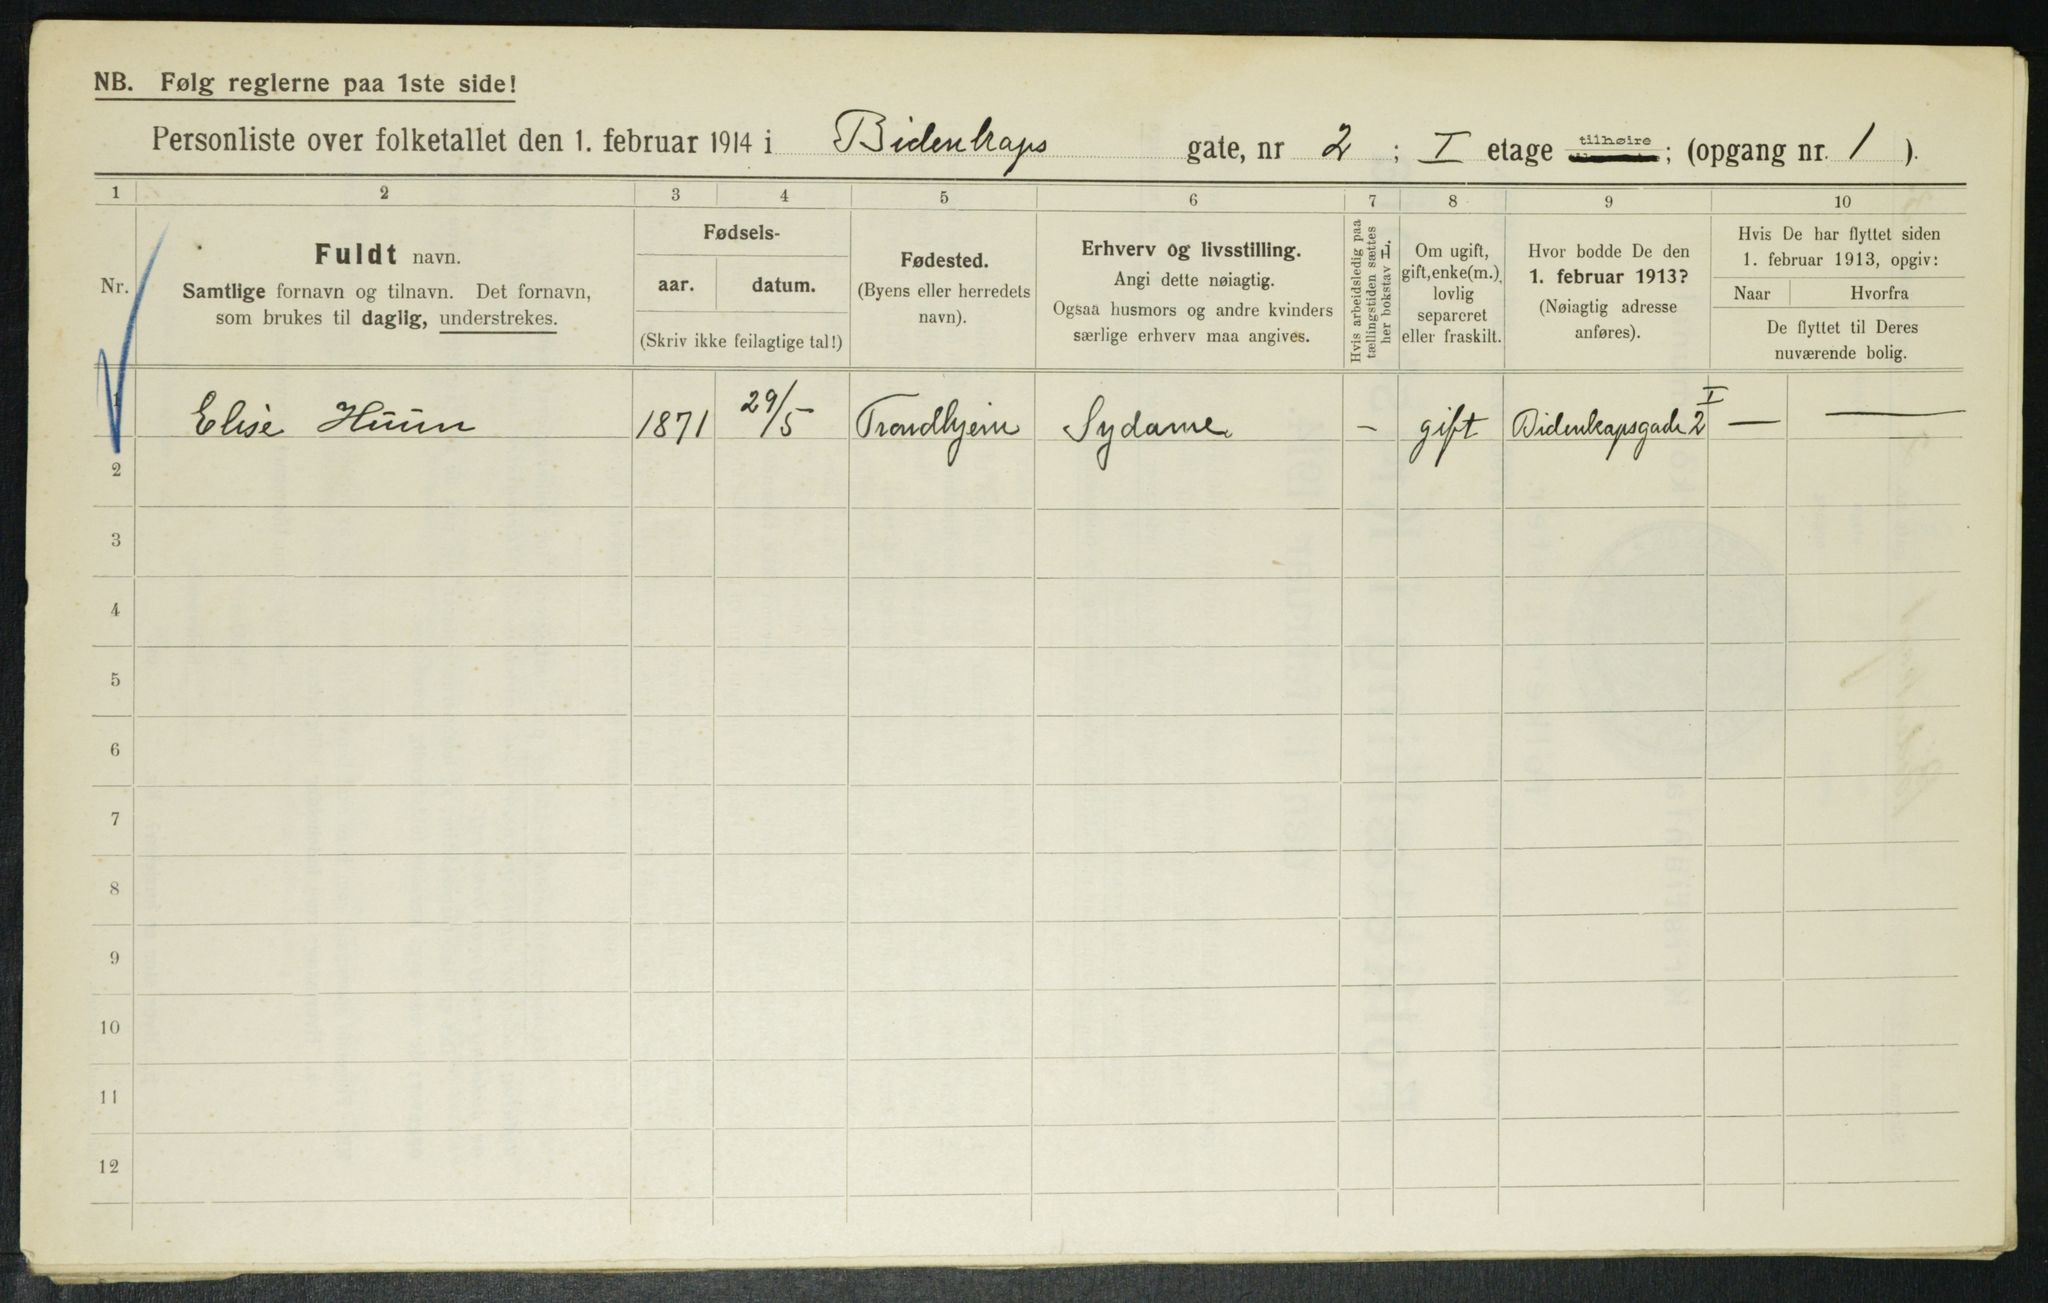 NB. Følg reglerne paa 1ste side!
Personliste over folketallet den 1. februar 1914 i Bidenkaps gate, nr 2 ; I etage tilhøire ; (opgang nr. 1 ).
1 2 3 4 5 6 7 8 9 10
Nr.
Fuldt navn.
Samtlige fornavn og tilnavn. Det fornavn,
som brukes til daglig, understrekes.
Fødsels-
aar. datum.
(Skriv ikke feilagtige tal!)
Fødested.
(Byens eller herredets
navn).
Erhverv og livsstilling.
Angi dette nøiagtig.
Ogsaa husmors og andre kvinders
særlige erhverv maa angives.
Hvis arbeidsledig paa
tællingstiden sættes
her bokstav L.
Om ugift,
gift, enke(m.),
lovlig
separeret
eller fraskilt.
Hvor bodde De den
1. februar 1913?
(Nøiagtig adresse
anføres).
Hvis De har flyttet siden
1. februar 1913, opgiv:
Naar Hvorfra
De flyttet til Deres
nuværende bolig.
1 Elise Huun 1871 29/5 Trondhjem Sydame – gift Bidenkapsgade 2 I — —
2
3
4
5
6
7
8
9
10
11
12